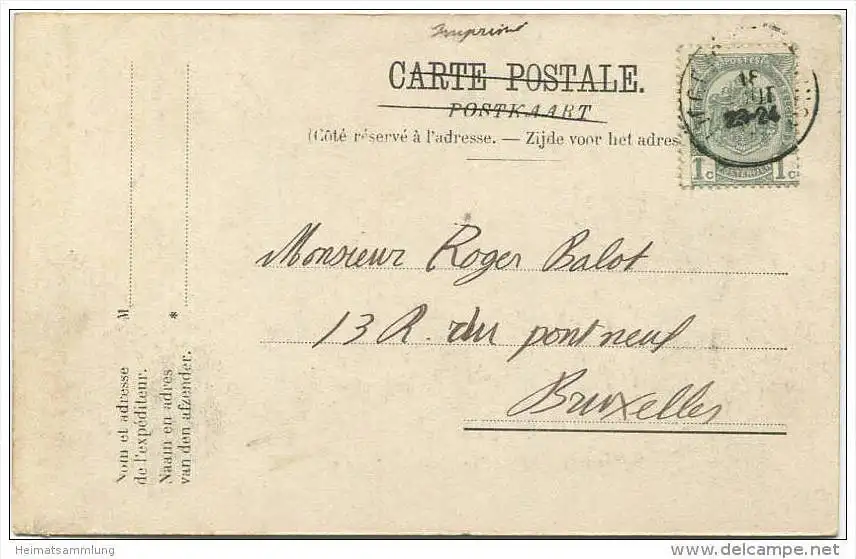 Imprimé
CARTE POSTALE.
POSTKAART
(Côté réservé à l'adresse. — Zijde voor het adres
POSTES
18
23-24
1c 1c
Monsieur Roger Balot
13 R. du pont neuf
Bruxelles
M
*
Nom et adresse
de l'expéditeur.
Naam en adres
van den afzender.
Heimatsammlung
delcampe.net